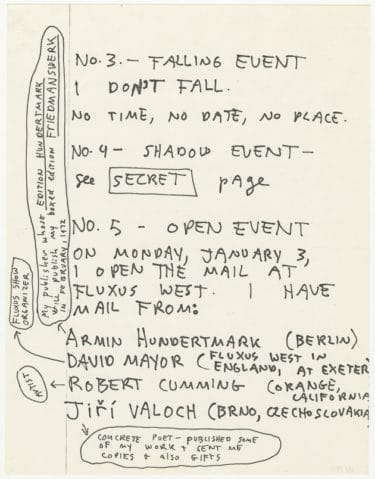 No. 3. - FALLING EVENT
I DON'T FALL.
NO TIME, NO DATE, NO PLACE.
NO. 4 - SHADOW EVENT -
See SECRET page
NO. 5 - OPEN EVENT
ON MONDAY, JANUARY 3,
I OPEN THE MAIL AT
FLUXUS WEST. I HAVE
MAIL FROM:
ARMIN HUNDERTMARK (BERLIN)
DAVID MAYOR (FLUXUS WEST IN
ENGLAND, AT EXETER)
ROBERT CUMMING (ORANGE,
CALIFORNIA
JIŘÍ VALOCH (BRNO, CZECHOSLOVAKIA)
My publisher whose EDITION HUNDERTMARK
will publish my boxed edition FRIEDMANSWERK
in FEBRUARY, 1972
FLUXUS SHOW
ORGANIZER
ARTIST
CONCRETE POET - PUBLISHED SOME
OF MY WORK + SENT ME
COPIES + also GIFTS